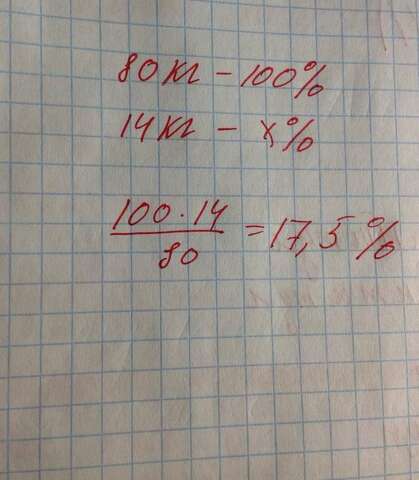 80 кг – 100%
14 кг – x%
100 · 14
80
= 17,5 %